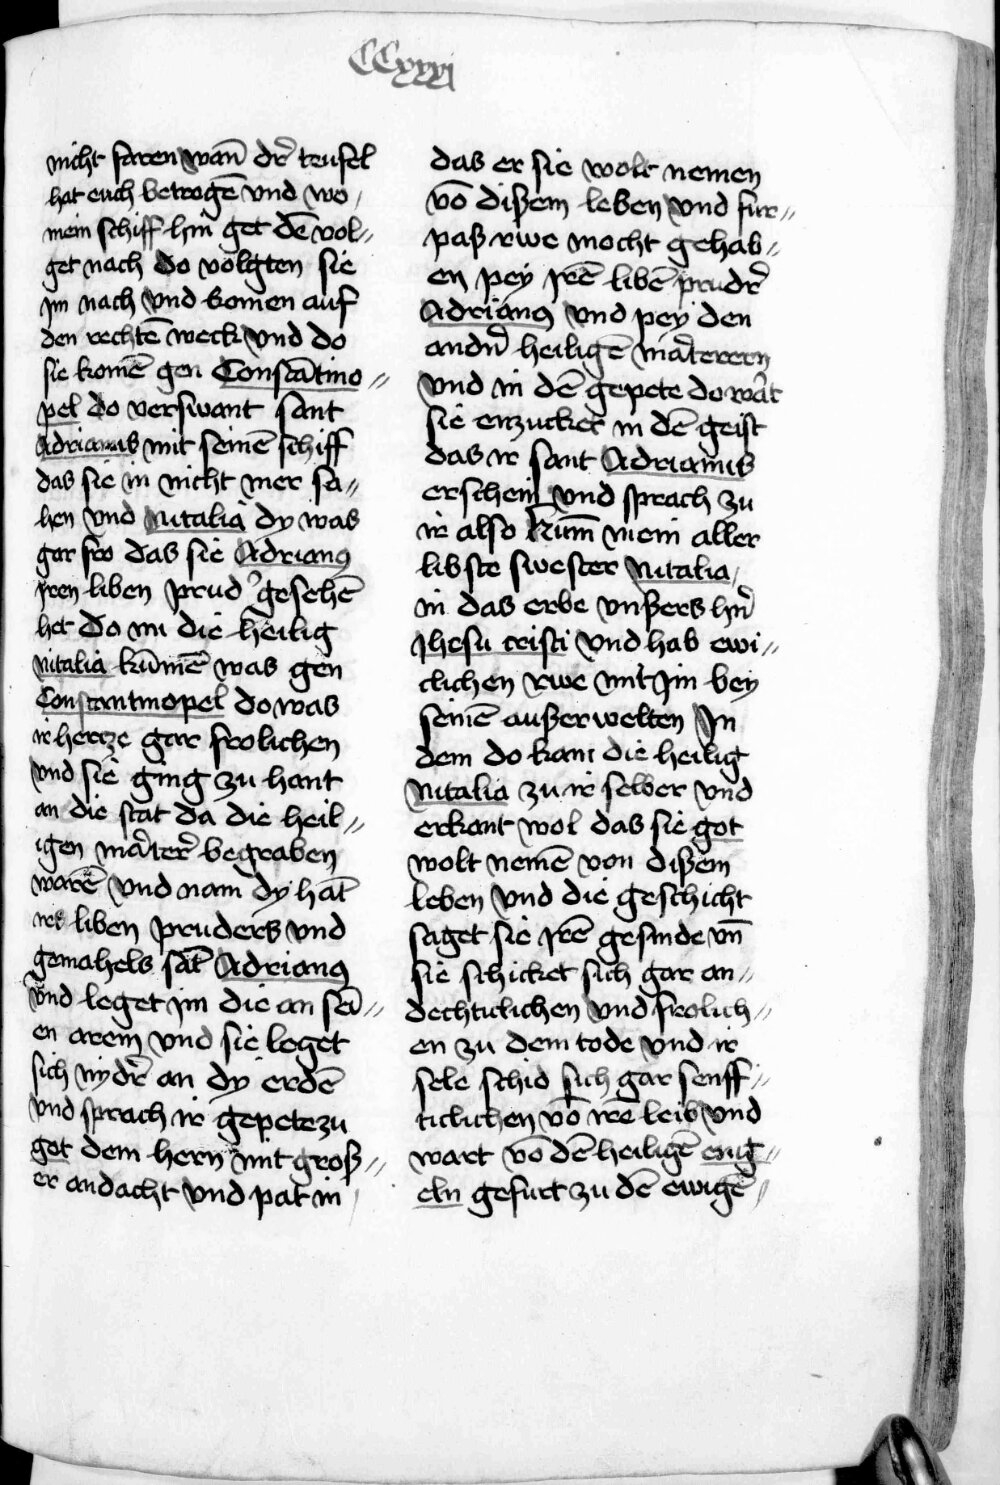 CCxxxj
nicht faren wan̄ dr̄ teufel
hat euch betrogē vnd wo
mein schiff hin get dē vol〃
get nach do volgten sie
jm nach vnd komen auf
den rechtē weck vnd do
sie komē gen Constātino〃
pel do verswant sant
Adrianus mit seinē schiff
das sie in nicht mer sa〃
hen vnd nitalia dy was
gar fro das sie Adrianꝰ
jren liben prudʼ gesehē
het do nu die heilig
nitalia kūmē was gen
Constantinopel do was
ir hercze gar frolichen
vnd sie ging zu hant
an die stat da die heil〃
igen mart̄er̄ begraben
warē vnd nam dy hāt
irs liben pruders vnd
gemahels sāt Adrianꝰ
vnd leget jm die an sei̅〃
en arem vnd sie leget
sich nydr̄ an dy erdē
vnd sprach ir gepete zu
got dem hern mit groß〃
er andacht vnd pat in
das er sie wolt nemen
vō dißem leben vnd fur〃
paß rwe mocht gehab〃
en pey jrē libē prudr̄
Adrianꝰ vnd pey den
andn̄ heiligē mart̄erern
vnd in dē gepete do wart
sie enzucket in dē geist
das ir sant Adrianus
erschein vnd sprach zu
ir also kum̄ mein aller
libste swester nitalia
in das erbe vnßers hn̄
Jhesu cristi vnd hab ewi〃
clichen rwe mit jm bey
seinē außerwelten In
dem do kam die heilig
nitalia zu ir selber vnd
erkant wol das sie got
wolt nemē von dißem
leben vnd die geschicht
saget sie jrē gesinde vn̄
sie schicket sich gar an〃
dechticlichen vnd frolich〃
en zu dem tode vnd ir
sele schid sich gar senff〃
ticlichen vō irē leib vnd
wart vō dē heiligē eng〃
eln gefurt zu dē ewigē